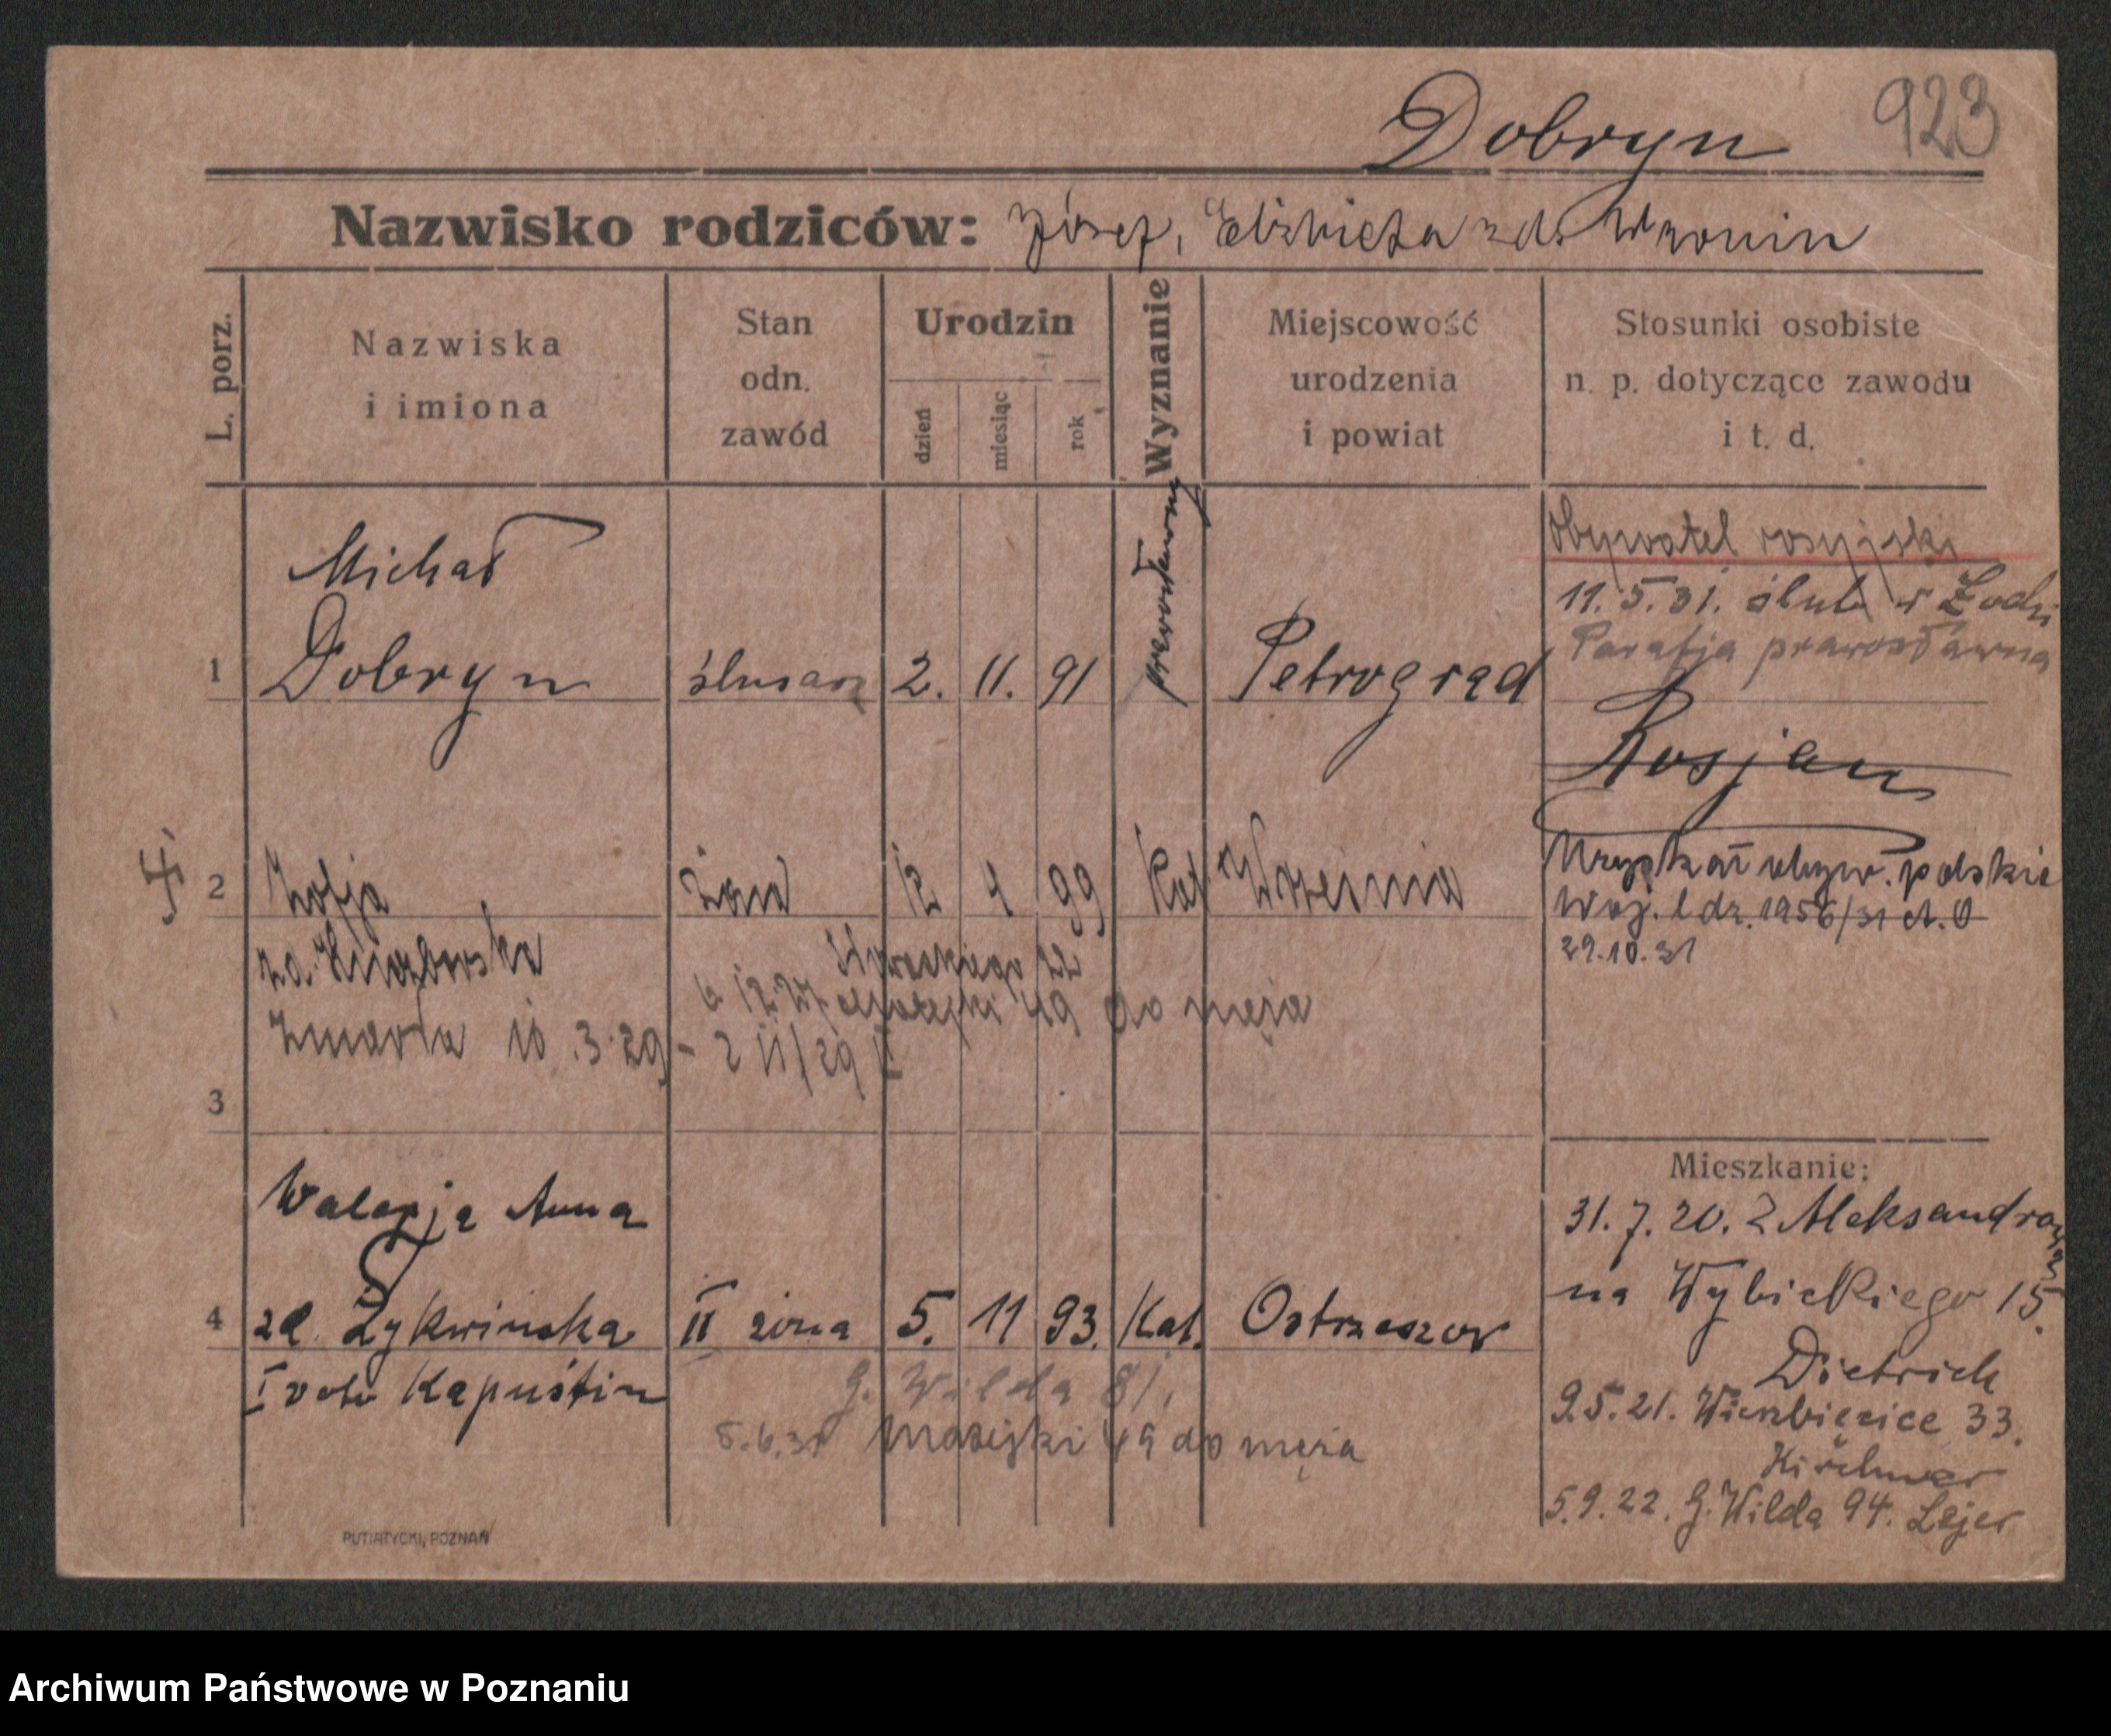 Dobryn 923
Nazwisko rodziców: Józef, Elżbieta zd.
L. porz.
Nazwiska
i imiona
Stan
odn.
zawód
Urodzin
dzień
miesiąc
rok
Wyznanie
Miejscowość
urodzenia
i powiat
Stosunki osobiste
n. p. dotyczące zawodu
i t. d.
1 Michał
Dobryn ślusarz 2. 11. 91 prawosławny Petrograd
Obywatel rosyjski
11.5.31. ślub w Łodzi
Parafja prawosławna
Rosjan
2 Zofja żona 12 4 99 Kat Września
Uzyskał obyw. polskie
Woj. l dz. 1956/31 A. O
29.10.31
zd.
12.27. 49 do męża
Zmarła 10.3.29 - 2 11/29
3
Walerja Anna
4 zd. Żykwińska II żona 5. 11 93. Kat. Ostrzeszow
I voto Kapuśtin
G. Wilda 81,
5.6.31 Matejki 49 do męża
Mieszkanie:
31.7.20. Z Aleksandrowa
na Wybickiego 15.
Dietrich
9.5.21. Wierzbięcice 33.
Kirchner
5.9.22. G. Wilda 94. Lajer
PUTIATYCKI, POZNAŃ
Archiwum Państwowe w Poznaniu